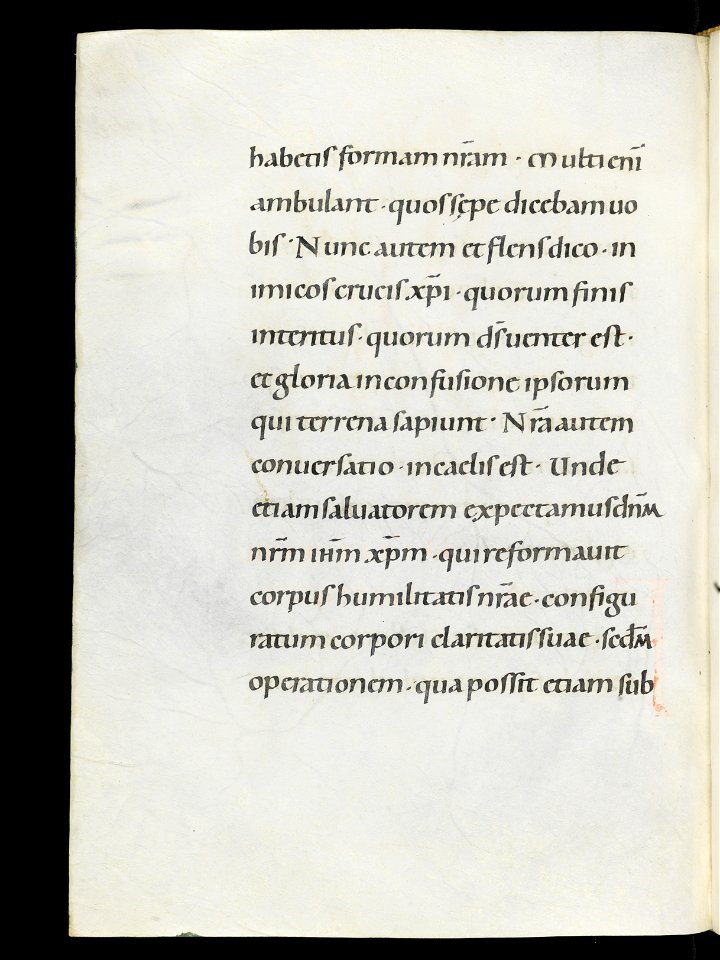 habetis formam nr̄am · Multi enī
ambulant · quos sępe dicebam uo
bis · Nunc autem et flens dico · in
imicos crucis xp̄i · quorum finis
interitus · quorum d̄s uenter est ·
et gloria in confusione ipsorum
qui terrena sapiunt · Nr̄a autem
conuersatio · in caelis est · Unde
etiam saluatorem expectamus dn̄m
nr̄m ih̄m xp̄m · qui reformauit
corpus humilitatis nr̄ae · configu
ratum corpori claritatis suae · secd̄m
operationem · qua possit etiam sub